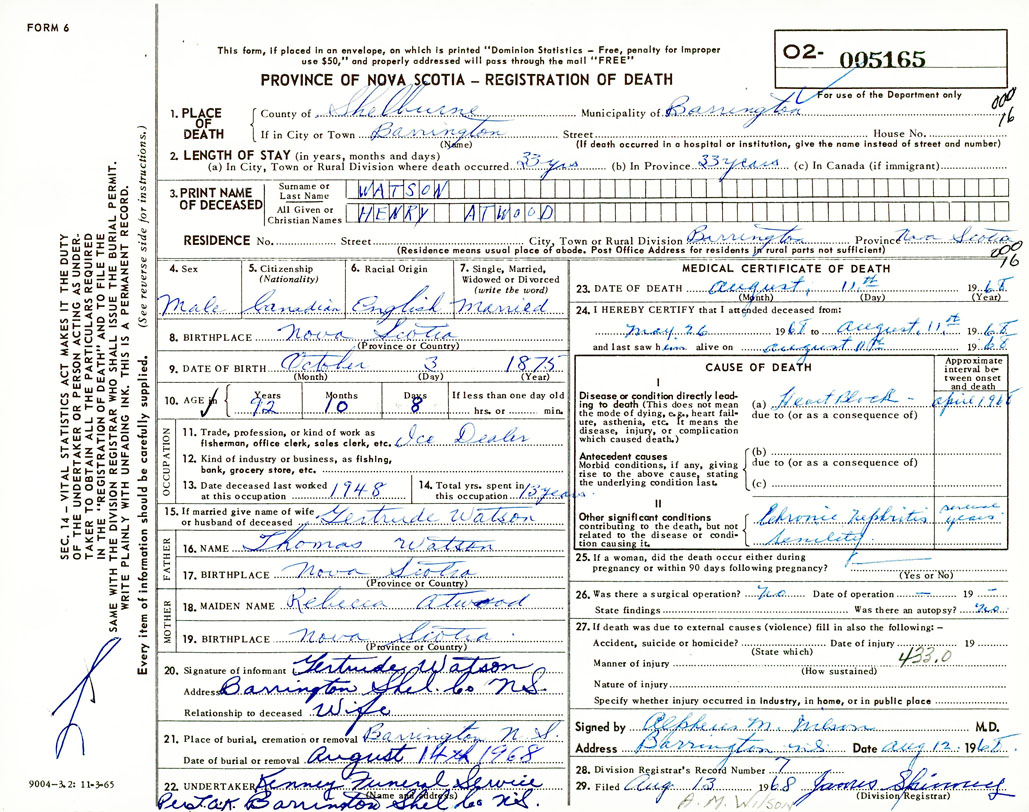 FORM 6
This form, if placed in an envelope, on which is printed "Dominion Statistics – Free, penalty for improper
use $50," and properly addressed will pass through the mail "FREE"
PROVINCE OF NOVA SCOTIA – REGISTRATION OF DEATH
O2- 005165
For use of the Department only
000
16
1. PLACE OF DEATH
County of Shelburne Municipality of Barrington
If in City or Town Barrington Street House No.
(Name) (If death occurred in a hospital or institution, give the name instead of street and number)
2. LENGTH OF STAY (in years, months and days)
(a) In City, Town or Rural Division where death occurred 33 yrs (b) In Province 33 years (c) In Canada (if immigrant)
3. PRINT NAME OF DECEASED
Surname or Last Name WATSON
All Given or Christian Names HENRY ATWOOD
RESIDENCE No. Street City, Town or Rural Division Barrington Province Nova Scotia
(Residence means usual place of abode. Post Office Address for residents in rural parts not sufficient)
000
16
4. Sex
Male
5. Citizenship
(Nationality)
Canadian
6. Racial Origin
English
7. Single, Married,
Widowed or Divorced
(write the word)
Married
8. BIRTHPLACE Nova Scotia
(Province or Country)
9. DATE OF BIRTH October 3 1875
(Month) (Day) (Year)
10. AGE in Years Months Days If less than one day old
92 10 8 hrs. or min.
OCCUPATION
11. Trade, profession, or kind of work as
fisherman, office clerk, sales clerk, etc. Ice Dealer
12. Kind of industry or business, as fishing,
bank, grocery store, etc.
13. Date deceased last worked
at this occupation 1948
14. Total yrs. spent in
this occupation 13 years.
15. If married give name of wife
or husband of deceased Gertrude Watson
FATHER
16. NAME Thomas Watson
17. BIRTHPLACE Nova Scotia
(Province or Country)
MOTHER
18. MAIDEN NAME Rebecca Atwood
19. BIRTHPLACE Nova Scotia
(Province or Country)
20. Signature of informant Gertrude Watson
Address Barrington Shel. Co N.S.
Relationship to deceased Wife
21. Place of burial, cremation or removal Barrington N S.
Date of burial or removal August 14th 1968
22. UNDERTAKER Kenney Funeral Service
(Name and Address)
Barrington Shel. Co N.S.
MEDICAL CERTIFICATE OF DEATH
23. DATE OF DEATH August, 11th 1968
(Month) (Day) (Year)
24. I HEREBY CERTIFY that I attended deceased from:
May, 26 1968 to August, 11th 1968
and last saw him alive on August 11th 1968
CAUSE OF DEATH
Approximate
interval be-
tween onset
and death
I
Disease or condition directly lead-
ing to death (This does not mean
the mode of dying, e.g., heart fail-
ure, asthenia, etc. It means the
disease, injury, or complication
which caused death.)
(a) Heart Block - April 1968
due to (or as a consequence of)
Antecedent causes
Morbid conditions, if any, giving
rise to the above cause, stating
the underlying condition last.
(b)
due to (or as a consequence of)
(c)
II
Other significant conditions
contributing to the death, but not
related to the disease or condi-
tion causing it.
Chronic Nephritis several years
Senility.
25. If a woman, did the death occur either during
pregnancy or within 90 days following pregnancy?
(Yes or No)
26. Was there a surgical operation? No Date of operation – 19 –
State findings Was there an autopsy? No.
27. If death was due to external causes (violence) fill in also the following: –
Accident, suicide or homicide? Date of injury 19
(State which) 433.0
Manner of injury
(How sustained)
Nature of injury
Specify whether injury occurred in industry, in home, or in public place
Signed by Alpheus M. Wilson M.D.
Address Barrington N.S. Date Aug 12 1968
28. Division Registrar's Record Number 7
29. Filed Aug 13 1968 James Spinney
(Division Registrar)
A. M. WILSON
SEC. 14 – VITAL STATISTICS ACT MAKES IT THE DUTY
OF THE UNDERTAKER OR PERSON ACTING AS UNDER-
TAKER TO OBTAIN ALL THE PARTICULARS REQUIRED
IN THE "REGISTRATION OF DEATH" AND TO FILE THE
SAME WITH THE DIVISION REGISTRAR WHO SHALL ISSUE THE BURIAL PERMIT.
WRITE PLAINLY WITH UNFADING INK. THIS IS A PERMANENT RECORD.
Every item of information should be carefully supplied. (See reverse side for instructions.)
9004–3.2: 11-3-65